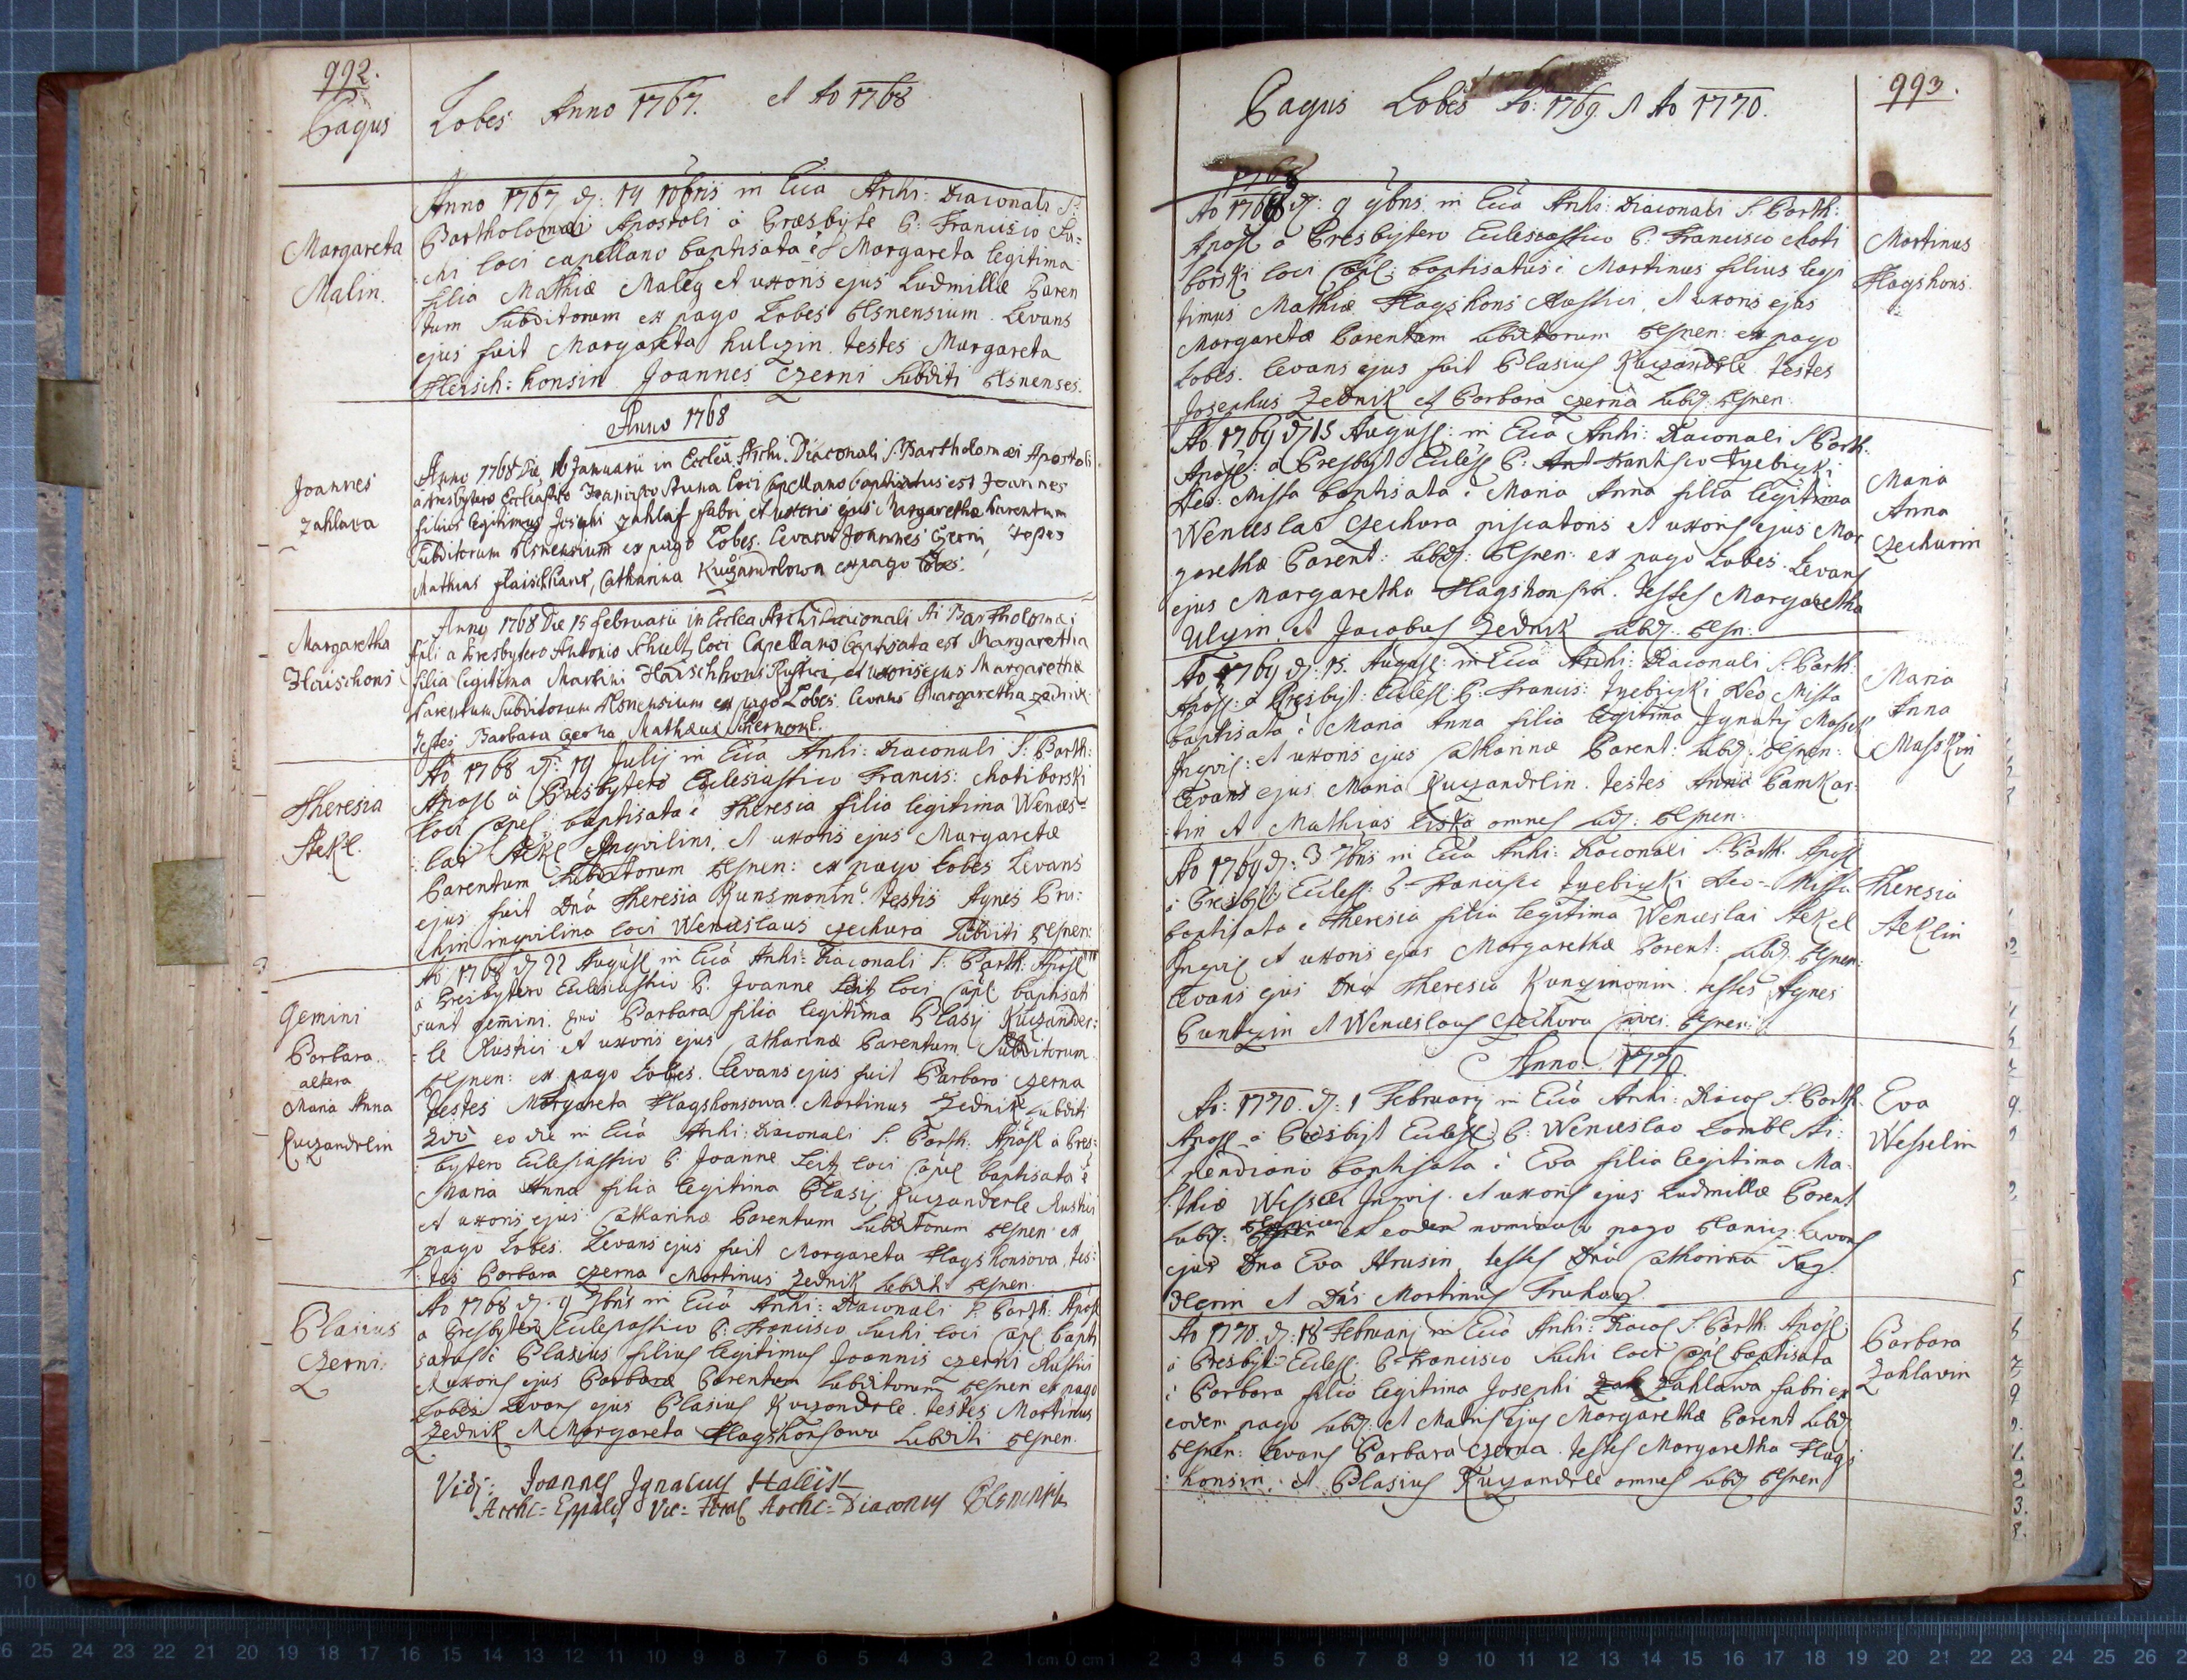 992.
Pagus Lobes Anno 1767. et Ao 1768
Margareta
Malin.
Anno 1767 d: 19 10bris in Ecca Archi: Diaconali S:
Bartholomæi Apostoli à Præsbyte P: Francisco Su=
chi loci capellano baptisata ē Margareta legitima
filia Mathiæ Maleg et uxoris ejus Ludmillæ Paren
tum Subditorum ex pago Lobes Plsnensium. Levans
ejus fuit Margareta hulizin. testes Margareta
Fleisch: honsin Joannes Czerni Subditi Plsnenses.
Anno 1768
Joannes
Zahlava
Anno 1768 Die 16 Januarii in Ecclia Archi. Diaconali S. Bartholomæi Apostoli
a Presbytero Eccliastico Francisco Stuna loci Capellano baptisatus est Joannes
filius legitimus Josephi Zahlaf fabri et uxoris ejus Margarethæ Parentum
Subditorum Plsnensium ex pago Lobes. Levavit Joannes Czerni, testes
Mathias Flaischhans, Catharina Kuczandrlowa ex pago Lobes.
Margaretha
Haischons
Anno 1768 Die 15 februarii in Ecclea Archi Diaconali Sti Bartholomæi
Apli a Presbytero Antonio Schultz loci Capellano baptisata est Margaretha
filia legitima Martini Haischhons Rustici, et uxoris ejus Margarethæ
Parentum Subditorum Plsnensium ex pago Lobes. levans Margaretha Zednik
Testes Barbara Czerna Mathæus Schernohl.
Theresia
Stekl.
Ao 1768 d: 19 Julij in Ecca Archi: Diaconali S: Barth:
Apost à Presbytero Ecclesiastico Francis: Chotiborski
loci Capel: baptisata ē Theresia filia legitima Wences=
lai Stekl Inqvilini, et uxoris ejus Margaretæ
Parentum Subditorum Plsnen: ex pago Lobes Levans
ejus fuit Dna Theresia Kunsmonin. testis Agnes Pru:
chin inqvilina loci Wenceslaus Czechura Subditi Plsnen:
Gemini
Barbara.
altera
Maria Anna
Kuczandrlin
Ao 1768 d 22 August in Ecca Archi: Diaconali S: Barth: Apost
à Presbytero Ecclesiastico P: Joanne Seitz loci Capel baptisati
sunt gemini. 1mo Barbara filia legitima Blasij Kuczander:
le Rustici et uxoris ejus Catharinæ Parentum Subditorum
Plsnen: ex pago Lobes. Levans ejus fuit Barbara Czerna
Testes Margareta Flagshonsowa. Martinus Zednik subditi
2do eo die in Ecca Archi: Diaconali S: Barth: Apost à Pres:
bytero Ecclesiastico P: Joanne Seitz loci Capel baptisata ē
Maria Anna filia legitima Blasij Kuczanderle Rustici
et uxoris ejus Catharinæ Parentum Subditorum Plsnen ex
pago Lobes. Levans ejus fuit Margareta Flagshonsova, tes:
tes Barbara Czerna Martinus Zednik subditi Plsnen.
Blasius
Czerni.
Ao 1768 d: 9 7bris in Ecca Archi: Diaconali S: Barth: Apost
a Presbytero Ecclesiastico P: Francisco Suchi loci Capl: bapti
satus ē Blasius filius legitimus Joannis Czerni Rustici
et uxoris ejus Barbaræ Parentum Subditorum Plsnen ex pago
Lobes Levans ejus Blasius Kuczandrle. testes Martinus
Zednik et Margareta Flagshonsowa subditi Plsnen.
Vidi: Joannes Ignatius Hallik
Archi=Eppalis Vic=For: Archi=Diaconus Plsnensis
993.
Pagus Lobes Ao: 1769. et Ao 1770.
1768
Ao 1768 d: 9 9bris in Ecca Archi: Diaconali S: Barth:
Apost à Presbytero Ecclesiastico P: Francisco Choti
borski loci Capl: baptisatus ē Martinus filius legi
timus Mathiæ Flagshons Rustici, et uxoris ejus
Margaretæ Parentum subditorum Plsnen: ex pago
Lobes. Levans ejus fuit Blasius Kuczandrle. testes
Josephus Zednik et Barbara Czerna subd: Plsnen:
Martinus
Flagshons.
Ao 1769 d 15 August: in Ecca Archi: Diaconali S Barth.
Apost: à Presbyt Eccless P: Francisco Tzebizki
Neo: Missa baptisata ē Maria Anna filia legitima
Wenceslai Czechura piscatoris et uxoris ejus Mar
garethæ Parent: subd: Plsnen: ex pago Lobes. Levans
ejus Margaretha Flagshonsin. Testes Margaretha
Ulzin, et Jacobus Zednik subd. Plsn:
Maria
Anna
Czechurin
Ao 1769 d: 15. August: in Ecca Archi: Diaconali S: Barth.
Apost: à Presbyt: Eccless: P: Francis: Tzebizki Neo Missa
baptisata ē Maria Anna filia legitima Ignatij Massek
Inqvil: et uxoris ejus Catharinæ Parent: subd: Plsnen:
Levans ejus Maria Kuczandrlin. testes Anna Pamkar-
tin et Mathias Liska omnes subd: Plsnen.
Maria
Anna
Masskin
Ao 1769 d: 3 7bris in Ecca Archi: Diaconali S: Barth. Apost
à Presbyt: Eccless: P=Francisco Tzebizki Neo=Missa
baptisata ē Theresia filia legitima Wenceslai Stekel
Inqvil et uxoris ejus Margarethæ Parent: subd: Plsnen:
Levans ejus Dna Theresia Kunzmonin. testes Agnes
Puntzin et Wenceslaus Czechura Cives Plsnen:
Theresia
Steklin
Anno. 1770.
Ao: 1770. d: 1 February in Ecca Archi: Diacol S. Barth.
Apost à Presbyt Eccless: P: Wenceslao Lombl Sti:
pendiario baptisata ē Eva filia legitima Ma:
thiæ Wessely Inqvil. et uxoris ejus Ludmillæ Parent
subd: ex eodem nominato pago Levans
ejus Dna Eva Hrusin, testes Dna Catharina
et Dns Martinus
Eva
Wesselin
Ao 1770. d: 18 February in Ecca Archi: Diacol S: Barth: Apost:
à Presbyt: Eccless: P Francisco Suchi loci Capl baptisata
ē Barbara filia legitima Josephi Zahlawa fabri ex
eodem pago subd: et Matris ejus Margarethæ Parent subd
Plsnen: Levans Barbara Czerna. testes Margaretha Flags
honsin. et Blasius Kuczandrle omnes subd Plsnen
Barbara
Zahlavin